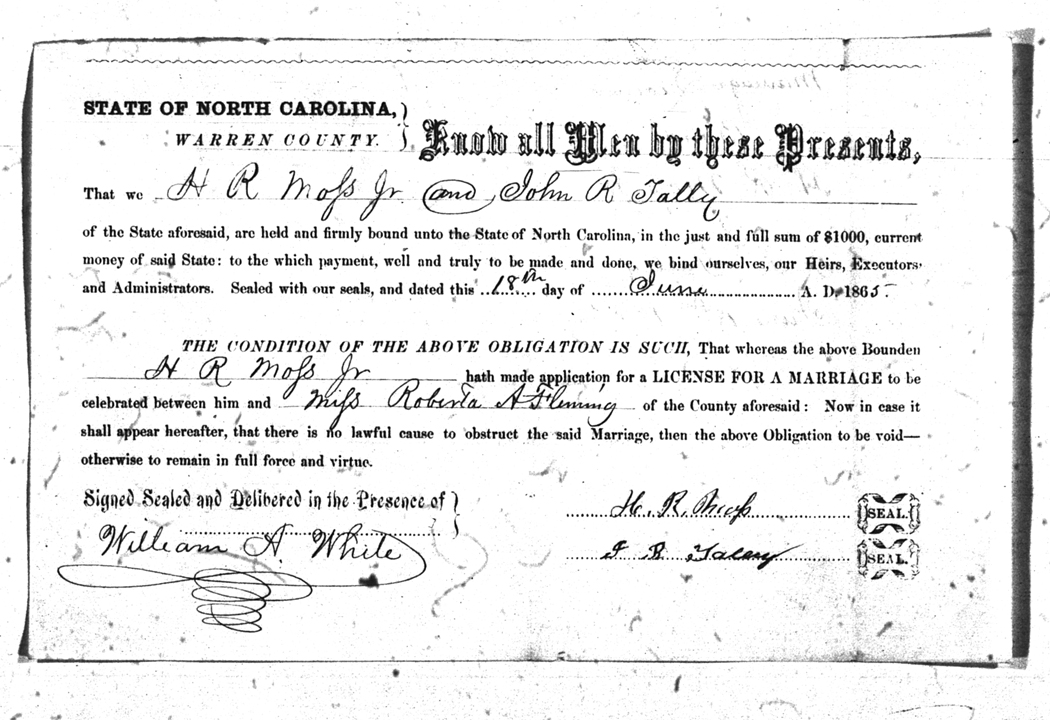 STATE OF NORTH CAROLINA, )
WARREN COUNTY. )
Know all Men by these Presents,
That we H R Moss Jr and John R Tally
of the State aforesaid, are held and firmly bound unto the State of North Carolina, in the just and full sum of $1000, current
money of said State: to the which payment, well and truly to be made and done, we bind ourselves, our Heirs, Executors
and Administrators. Sealed with our seals, and dated this 18th day of June A. D. 1865.
THE CONDITION OF THE ABOVE OBLIGATION IS SUCH, That whereas the above Bounden
H R Moss Jr hath made application for a LICENSE FOR A MARRIAGE to be
celebrated between him and Miss Roberta A Flemming of the County aforesaid: Now in case it
shall appear hereafter, that there is no lawful cause to obstruct the said Marriage, then the above Obligation to be void—
otherwise to remain in full force and virtue.
Signed Sealed and Delivered in the Presence of )
H. R. Moss SEAL.
William A White
J R Talley SEAL.